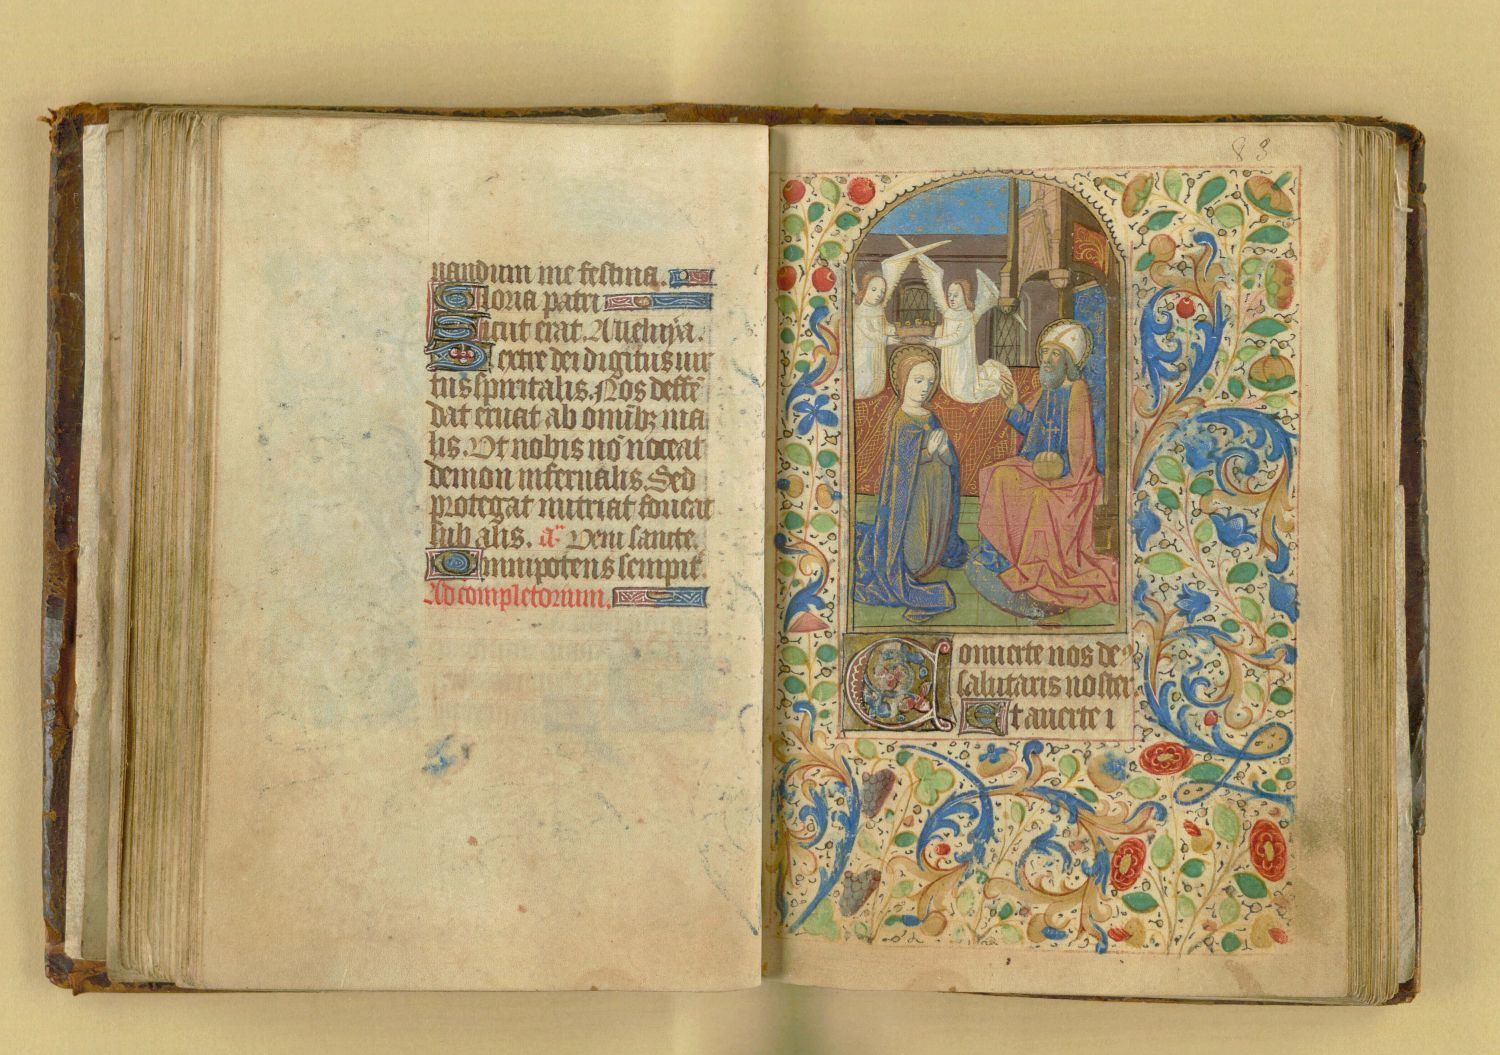 nandum me festina.
Gloria patri
Sicut erat. Alleluya.
Dextre dei digitus vir
tus spiritalis. Nos deffē
dat eruat ab omībꝫ ma
lis. Ut nobis nō noceat
demon infernalis. Sed
protegat nutriat foveat
sub alis. a᷑ Veni sancte.
Omnipotens sempit̄
Ad completorium.
83
Conuerte nos deꝰ
salutaris noster
Et auerte i